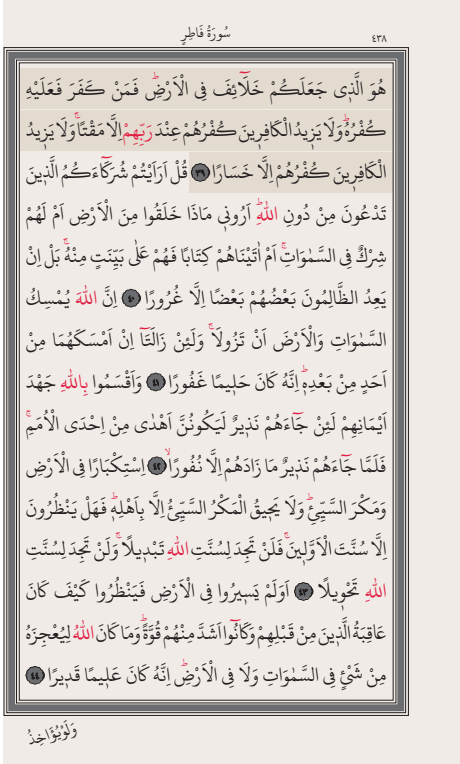 سُورَةُ فَاطِرٍ
٤٣٨
هُوَ الَّذ۪ي جَعَلَكُمْ خَلَٓائِفَ فِي الْاَرْضِۜ فَمَنْ كَفَرَ فَعَلَيْهِ
كُفْرُهُۜ وَلَا يَز۪يدُ الْكَافِر۪ينَ كُفْرُهُمْ عِنْدَ رَبِّهِمْ اِلَّا مَقْتًاۚ وَلَا يَز۪يدُ
الْكَافِر۪ينَ كُفْرُهُمْ اِلَّا خَسَارًا ﴿٣٩﴾ قُلْ اَرَاَيْتُمْ شُرَكَٓاءَكُمُ الَّذ۪ينَ
تَدْعُونَ مِنْ دُونِ اللّٰهِۜ اَرُون۪ي مَاذَا خَلَقُوا مِنَ الْاَرْضِ اَمْ لَهُمْ
شِرْكٌ فِي السَّمٰوَاتِۚ اَمْ اٰتَيْنَاهُمْ كِتَابًا فَهُمْ عَلٰى بَيِّنَتٍ مِنْهُۚ بَلْ اِنْ
يَعِدُ الظَّالِمُونَ بَعْضُهُمْ بَعْضًا اِلَّا غُرُورًا ﴿٤٠﴾ اِنَّ اللّٰهَ يُمْسِكُ
السَّمٰوَاتِ وَالْاَرْضَ اَنْ تَزُولَاۚ وَلَئِنْ زَالَتَٓا اِنْ اَمْسَكَهُمَا مِنْ
اَحَدٍ مِنْ بَعْدِه۪ۜ اِنَّهُ كَانَ حَل۪يمًا غَفُورًا ﴿٤١﴾ وَاَقْسَمُوا بِاللّٰهِ جَهْدَ
اَيْمَانِهِمْ لَئِنْ جَٓاءَهُمْ نَذ۪يرٌ لَيَكُونُنَّ اَهْدٰى مِنْ اِحْدَى الْاُمَمِۚ
فَلَمَّا جَٓاءَهُمْ نَذ۪يرٌ مَا زَادَهُمْ اِلَّا نُفُورًاۙ ﴿٤٢﴾ اِسْتِكْبَارًا فِي الْاَرْضِ
وَمَكْرَ السَّيِّئِۜ وَلَا يَح۪يقُ الْمَكْرُ السَّيِّئُ اِلَّا بِاَهْلِه۪ۜ فَهَلْ يَنْظُرُونَ
اِلَّا سُنَّتَ الْاَوَّل۪ينَۚ فَلَنْ تَجِدَ لِسُنَّتِ اللّٰهِ تَبْد۪يلًاۚ وَلَنْ تَجِدَ لِسُنَّتِ
اللّٰهِ تَحْو۪يلًا ﴿٤٣﴾ اَوَلَمْ يَس۪يرُوا فِي الْاَرْضِ فَيَنْظُرُوا كَيْفَ كَانَ
عَاقِبَةُ الَّذ۪ينَ مِنْ قَبْلِهِمْ وَكَانُٓوا اَشَدَّ مِنْهُمْ قُوَّةًۜ وَمَا كَانَ اللّٰهُ لِيُعْجِزَهُ
مِنْ شَيْءٍ فِي السَّمٰوَاتِ وَلَا فِي الْاَرْضِۜ اِنَّهُ كَانَ عَل۪يمًا قَد۪يرًا ﴿٤٤﴾
وَلَوْ يُؤَاخِذُ